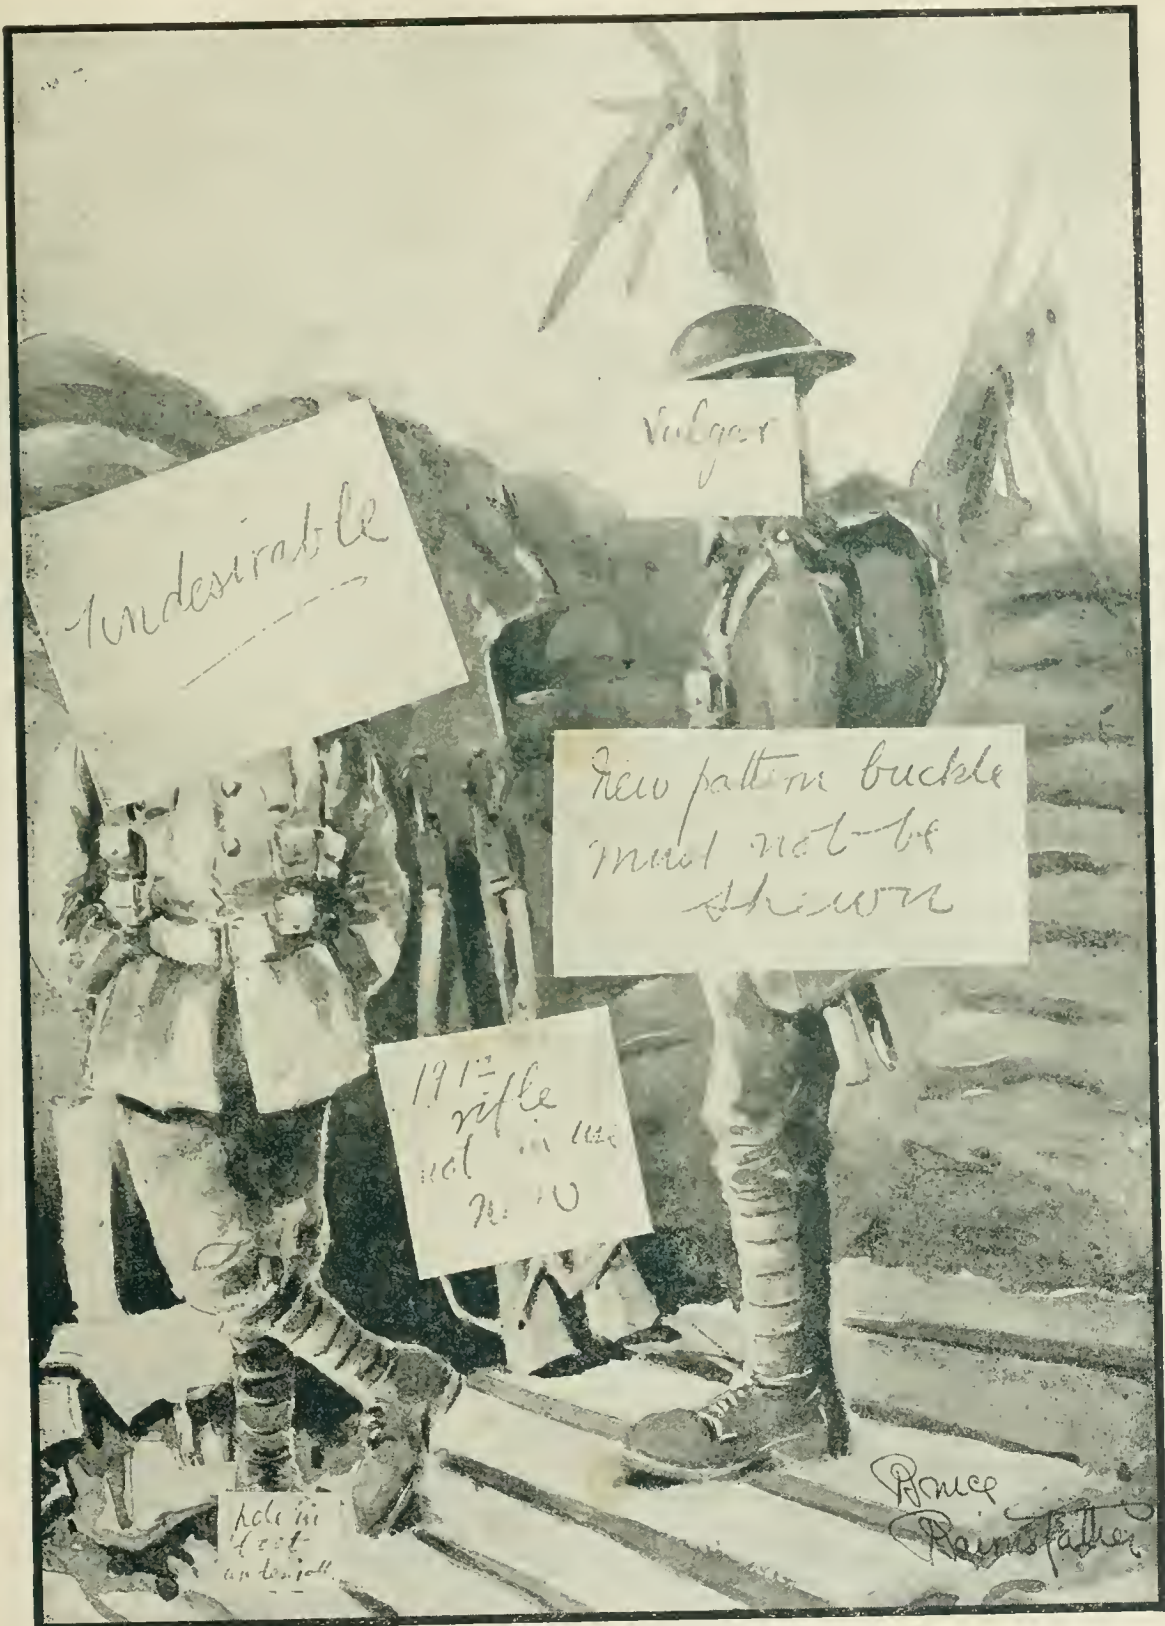 Vulgar
Undesirable
New pattern buckle
must not be
shewn
rifle
not in use
now
hole in
boot
undesirable
Bruce
Bairnsfather